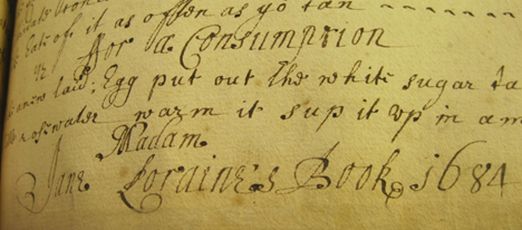 Eate of it as often as yo can
for a Consumption
a new laid Egg put out the white sugar ta
rosewater warm it sup it vp in a m
Madam
Jane Loraine's Book 1684